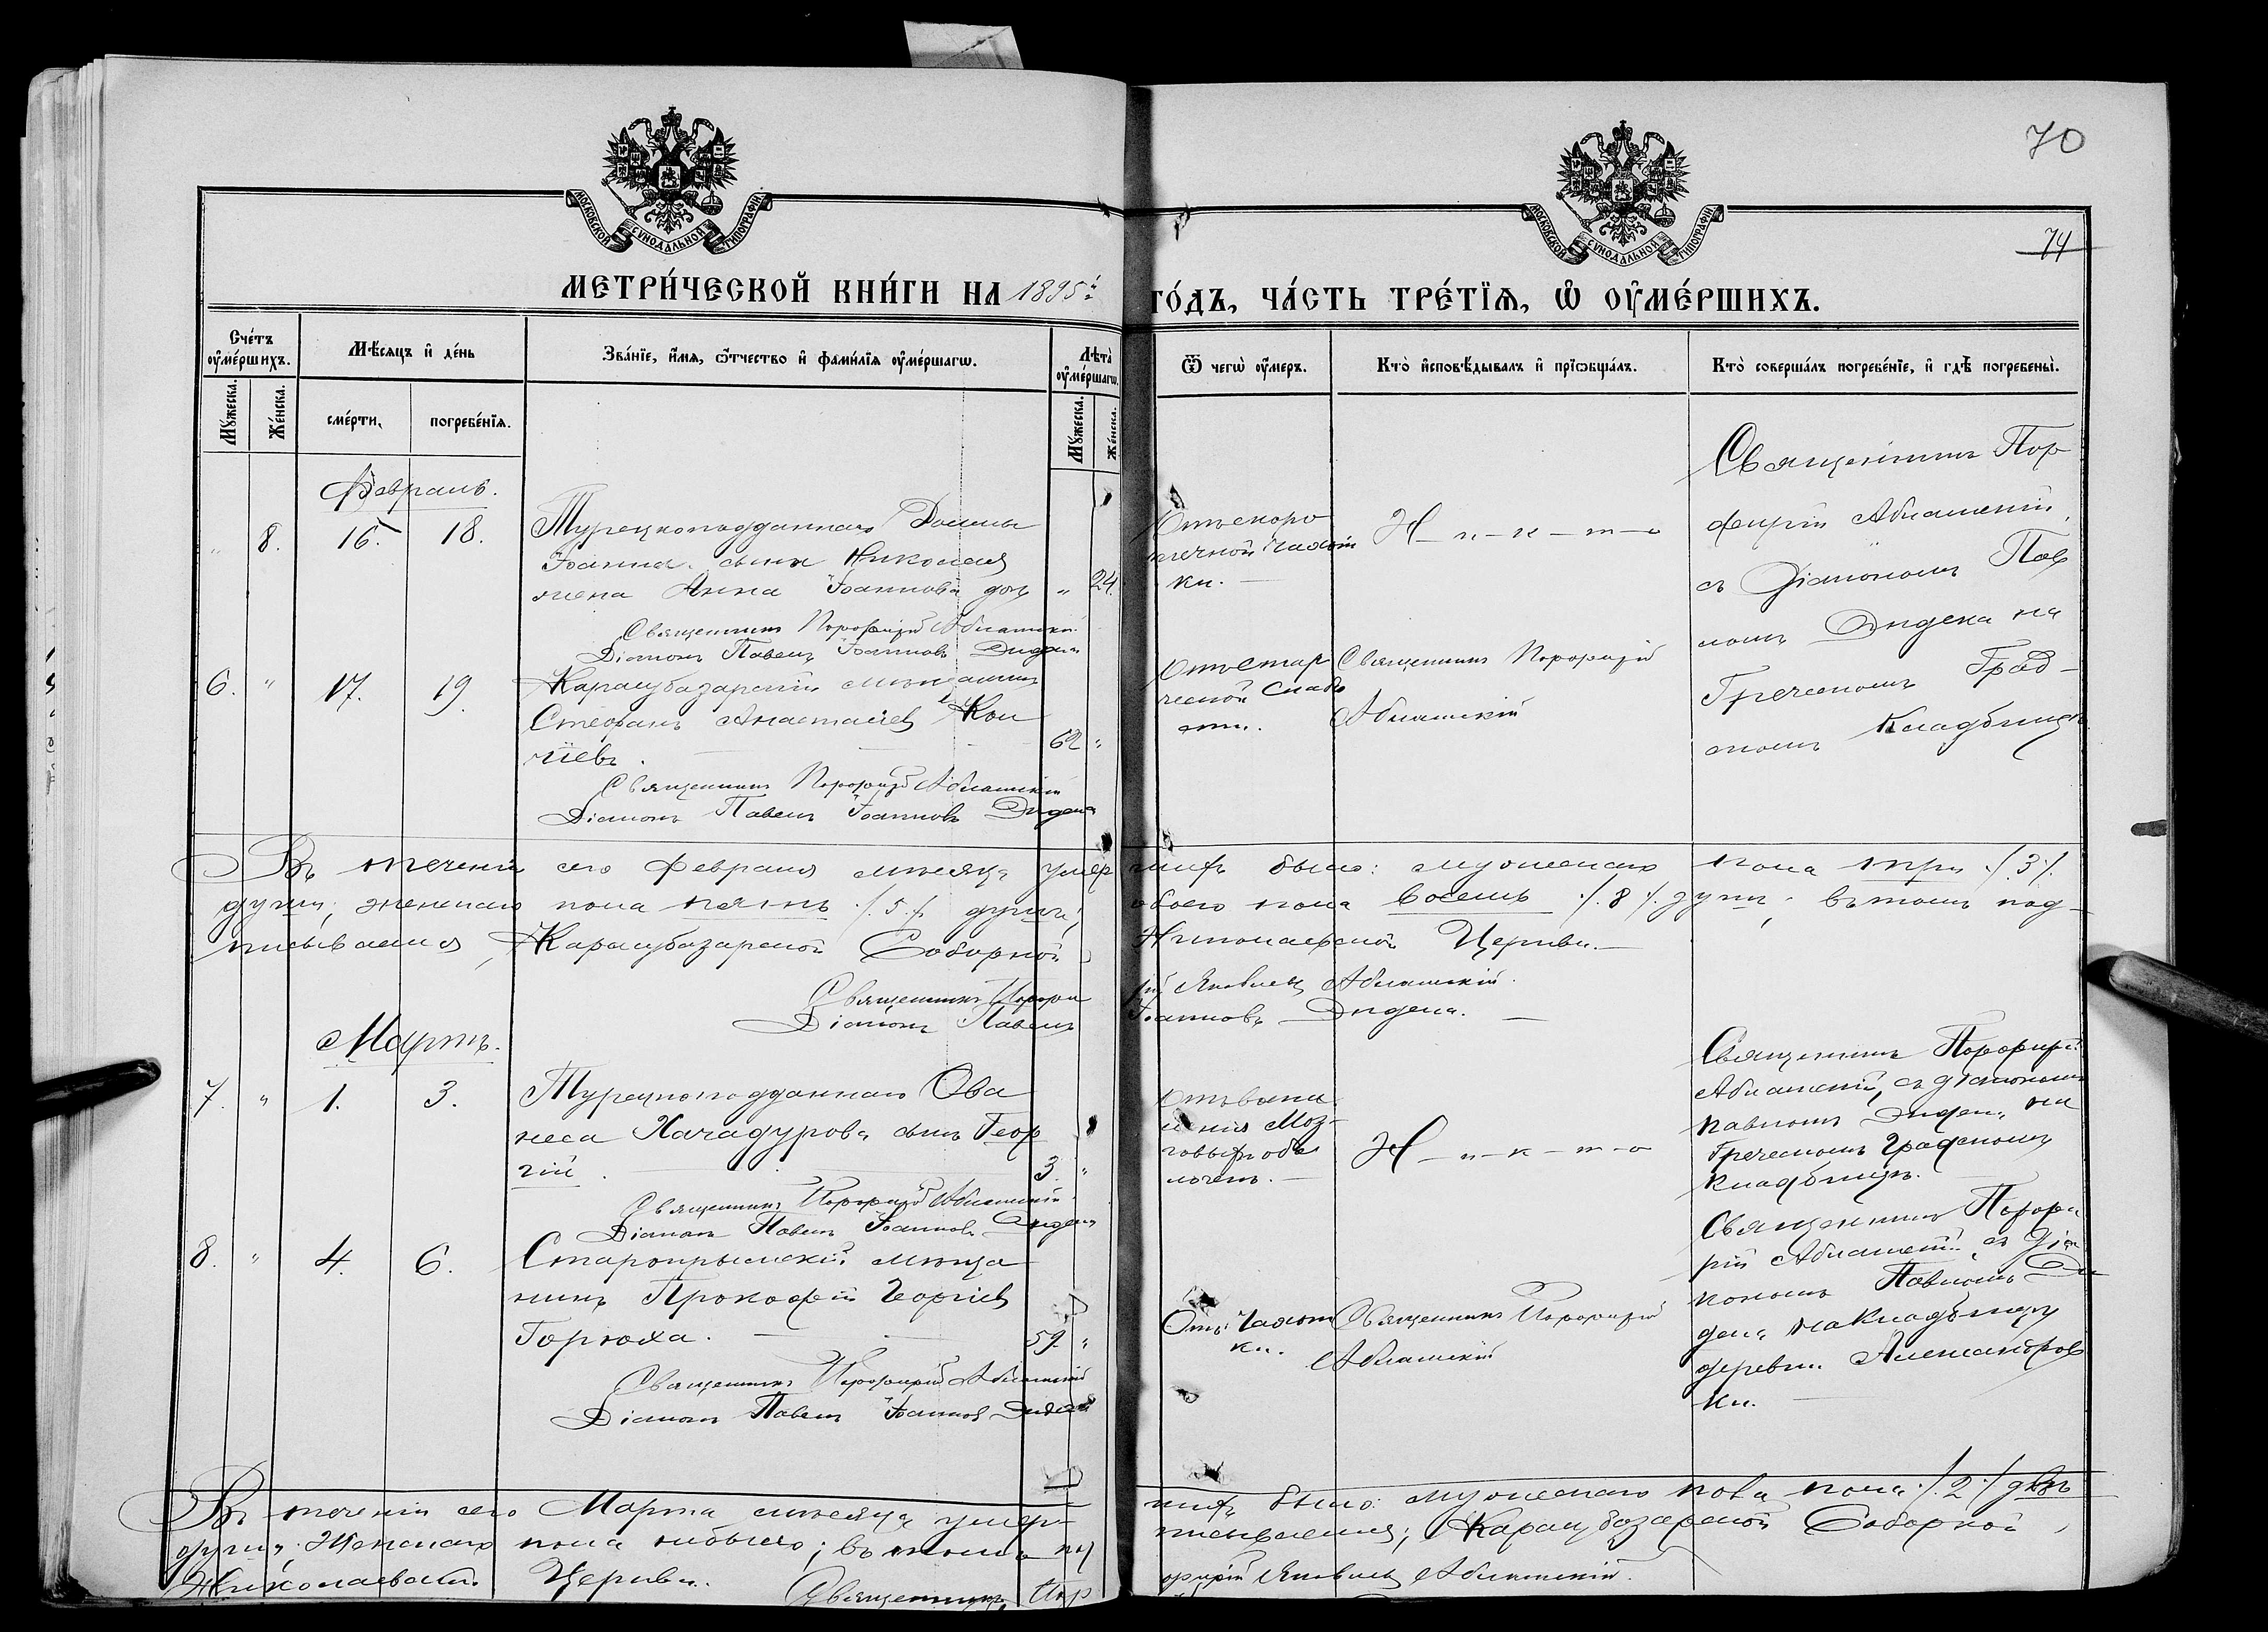 70
74
МОСКОВСКОЙ СУНОДАЛЬНОЙ ТИПОГРАФІИ
МОСКОВСКОЙ СУНОДАЛЬНОЙ ТИПОГРАФІИ
МЕТРИ́ЧЕСКОЙ КНИ́ГИ НА 1895й
ГО́ДЪ, ЧА́СТЬ ТРЕ́ТІѦ, Ѡ҆ ОУ҆МЕ́РШИХЪ.
Сче́тъ оу҆ме́ршихъ.
Мѣ́сяцъ и҆ де́нь
Зва́нїе, и҆́мя, ѻ҆́тчество и҆ фами́лїя оу҆ме́ршагѡ.
Лѣта̀ оу҆ме́ршагѡ.
Ѿ чегѡ̀ оу҆́меръ.
Кто̀ и҆сповѣ́дывалъ и҆ прїѡбща́лъ.
Кто̀ соверша́лъ погребе́нїе, и҆ гдѣ̀ погребены̀.
Мꙋ́жеска.
Же́нска.
сме́рти.
погребе́нїя.
Мꙋ́жеска.
Же́нска.
Февраль.
" 8. 16. 18.
Турецкоподданнаго
Іоанна сына Николая
жена Анна Іоаннова доч " 24.
Священникъ Порфирій Аблашскій
Діаконъ Павелъ Іоанновъ Дидека
Отъ скоро
течной чахот
ки.
Н-и-к-т-о
Священникъ Пор
фирій Аблашскій,
съ Діакономъ Пав
ломъ Дидека на
Греческомъ Град-
скомъ Кладбищѣ
6. " 17. 19.
Карасубазарскій мѣщанинъ
Стефанъ Анастасіев Кон
чіевъ. 62 "
Священникъ Порфирій Аблашскій
Діаконъ Павелъ Іоанновъ Дидека
Отъ стар
ческой слабо
сти.
Священникъ Порфирій
Аблашскій
Въ теченіи сего Февраля мѣсяца умер
шихъ было: мужескаго пола три /.3./.
души, женскаго пола пять /.5./. душъ,
обоего пола восемь /.8./. душъ; въ томъ под-
писываемся, Карасубазарской Соборной
Николаевской Церкви.
Священникъ Порфи
рій Яковлев Аблашскій.
Діаконъ Павелъ
Іоанновъ Дидека.
Мартъ.
7. " 1. 3.
Турецкоподданнаго Ова
неса Хачадурова сынъ Геор
гій. 3 "
Священникъ Порфирій Аблашскій
Діаконъ Павелъ Іоанновъ Дидека
Отъ воспа
ленія Моз-
говыхъ обо
лочекъ.
Н-и-к-т-о
Священникъ Порфирій
Аблашскій, съ діакономъ
Павломъ Дидека на
Греческомъ Градскомъ
Кладбищѣ.
8. " 4. 6.
Старокрымскій мѣща
нинъ Прокофій Георгіев
Горюха. 59. "
Священникъ Порфирій Аблашскій
Діаконъ Павелъ Іоаннов Дидека
Отъ Чахот
ки.
Священникъ Порфирій
Аблашскій
Священникъ Порфи
рій Аблашскій съ Діа
кономъ Павломъ Ди
дека на кладбищѣ
деревни Александров
ки.
Въ теченіи сего Марта мѣсяца умер-
шихъ было: мужескаго пола /.2./ двѣ
души, Женскаго пола небыло; въ томъ под
писываемся; Карасубазарской Соборной
Николаевской Церкви.
Священникъ Пор
фирій Яковлев Аблашскій.